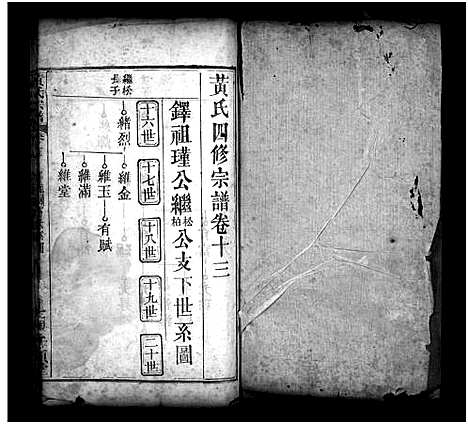 黃氏四修宗譜卷十三
鐸祖瑾公繼松柏公支下世系圖
十六世
十七世
十八世
十九世
二十世
繼松長子
緒烈
維金
維玉
有賦
維滿
維堂